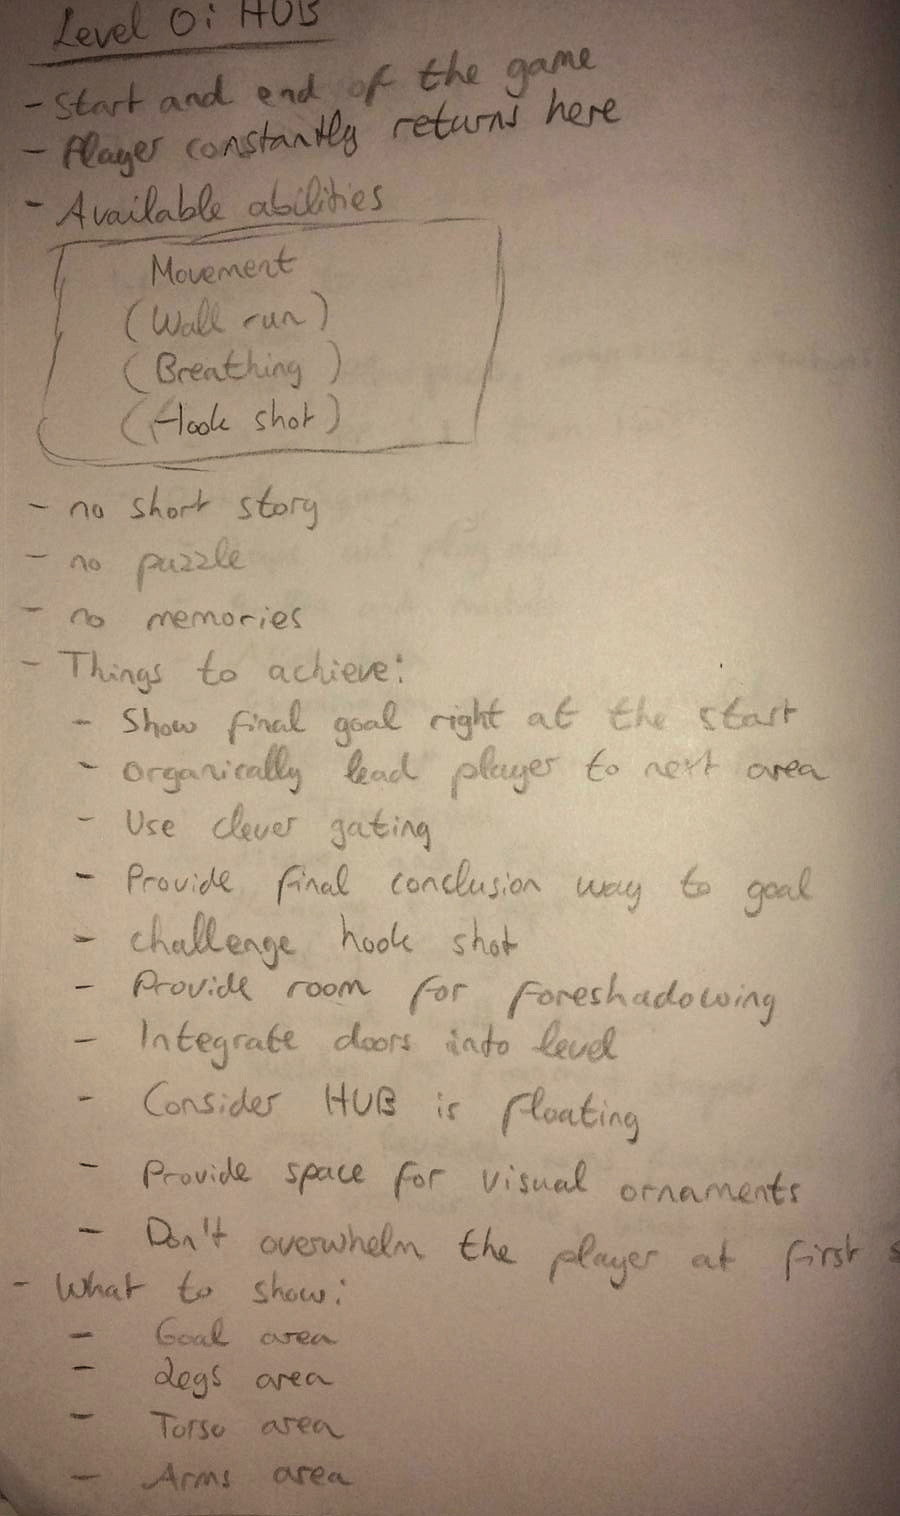 Level 0: HUB
- Start and end of the game
- Player constantly returns here
- Available abilities
Movement
(Wall run)
(Breathing)
(Hook shot)
- no short story
- no puzzle
- no memories
- Things to achieve:
- Show final goal right at the start
- organically lead player to next area
- Use clever gating
- Provide final conclusion way to goal
- challenge hook shot
- Provide room for foreshadowing
- Integrate doors into level
- Consider HUB is floating
- Provide space for visual ornaments
- Don't overwhelm the player at first
- What to show:
- Goal area
- Legs area
- Torso area
- Arms area